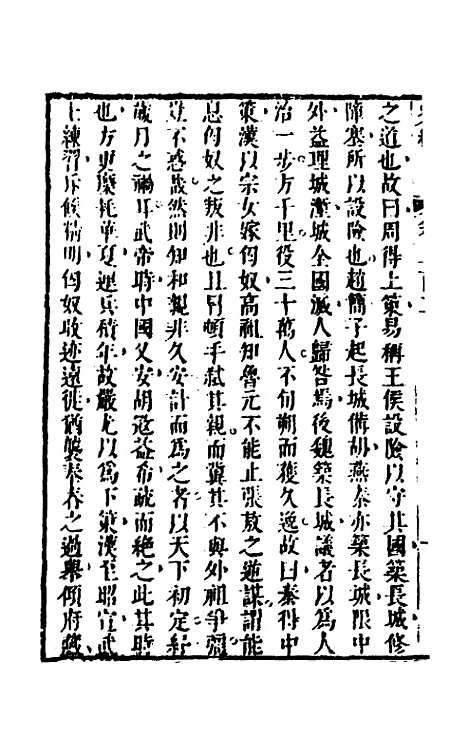 之道也故曰周得上策易稱王侯設險以守其國築長城修
障塞所以設險也趙簡子起長城備胡燕秦亦築長城限中
外益理城塹城全國滅人歸咎焉後魏築長城議者以為人
治一步方千里役三十萬人不旬朔而獲久逸故曰秦得中
策漢以宗女嫁匈奴高祖知魯元不能止張敖之逆謀謂能
息匈奴之叛非也且冒頓手弒其親而冀其不與外祖爭彊
豈不惑哉然則知和親非久安計而為之者以天下初定紓
歲月之禍耳武帝時中國乂安胡寇益希疏而絕之此其時
也方更糜耗華夏連兵積年故嚴尤以為下策漢至昭宣武
士練習斥候精明匈奴收迹遠徙猶襲奉春之過舉傾府藏